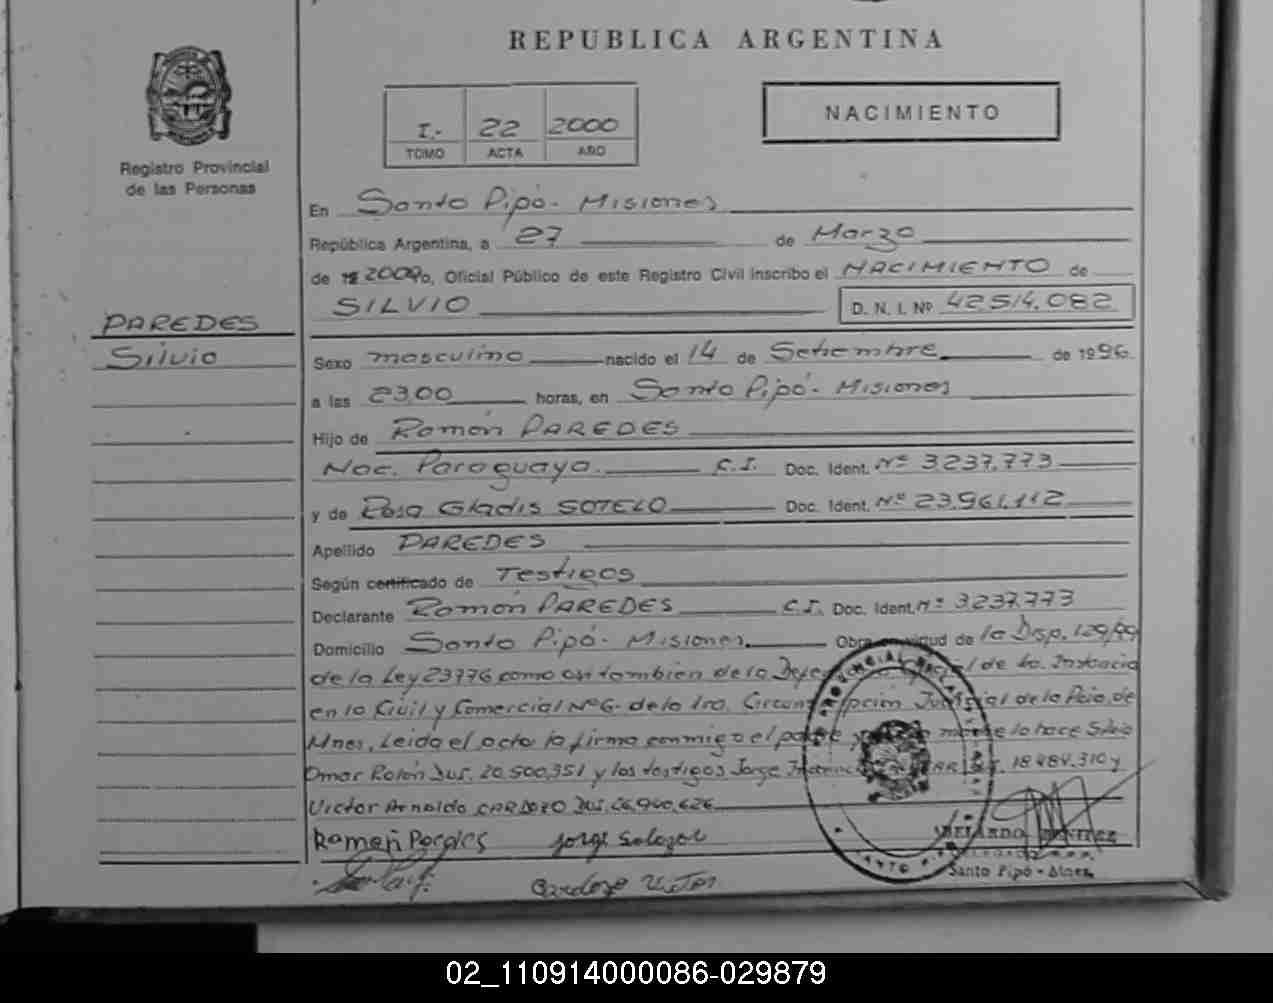 REPUBLICA ARGENTINA
Registro Provincial
de las Personas
I.- 22 2000
TOMO ACTA AÑO
NACIMIENTO
En Santo Pipó - Misiones
República Argentina, a 27 de Marzo
de 2000 yo, Oficial Público de este Registro Civil inscribo el NACIMIENTO de
SILVIO D. N. I. Nº 42.514.082
PAREDES
Silvio
Sexo masculino nacido el 14 de Setiembre de 1996
a las 23,00 horas, en Santo Pipó - Misiones
Hijo de Ramón PAREDES
Nac. Paraguaya. C.I. Doc. Ident. Nº 3.237.773
y de Rosa Gladis SOTELO Doc. Ident. Nº 23.961.112
Apellido PAREDES
Según certificado de Testigos
Declarante Ramón PAREDES C.I. Doc. Ident. Nº 3.237.773
Domicilio Santo Pipó - Misiones Obra en virtud de la Disp. 129/99
de la Ley 23776 como asi tambien de la de 1o. Instancia
en lo Civil y Comercial Nº 6 de la 1ra. Circunscripción Judicial de la Pcia. de
Mnes. Leida el acta la firma conmigo el padre y lo hace Silvio
Omar Rolón 20.500.351 y los testigos Jorge 18.484.310 y
Victor Arnaldo CARDOZO 26.940.626
Ramon Paredes Jorge Salazar
Cardozo Victor
ABELARDO BENITEZ
Santo Pipó - Mnes.
02_110914000086-029879